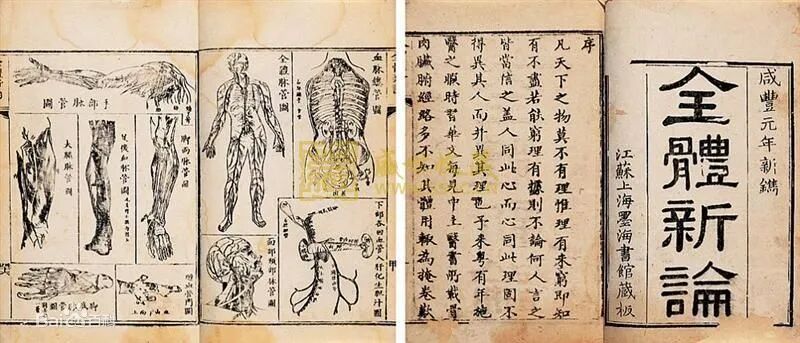 咸豐元年新鐫
全體新論
江蘇上海墨海書館藏板
序
凡天下之物莫不有理惟理有未窮即知
有不盡若能窮理有據則不論何人言之
皆當信之蓋人同此心而心同此理固不
得異其人而并異其理也予來粵有年施
醫之暇時習華文每見中土醫書所載骨
肉臟腑經絡多不知其體用輒為掩卷歎
血脉總管圖
全體脉管圖
下部各回血管入肝化生胆汁圖
面部頸部脉管圖
甲
手部脉管圖
脚面脉管圖
大腿脉管圖
脚底脉管圖
Baidu百科